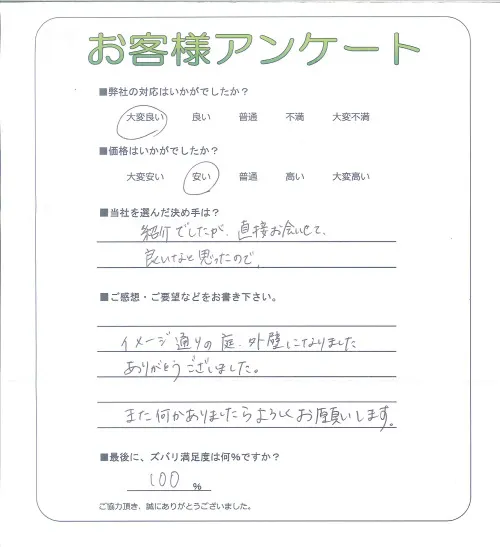 お客様アンケート
■弊社の対応はいかがでしたか?
大変良い 良い 普通 不満 大変不満
■価格はいかがでしたか?
大変安い 安い 普通 高い 大変高い
■当社を選んだ決め手は?
紹介でしたが、直接お会いして、
良いなと思ったので、
■ご感想・ご要望などをお書き下さい。
イメージ通りの庭、外壁になりました
ありがとうございました。
また何かありましたらよろしくお願いします。
■最後に、ズバリ満足度は何%ですか?
100 %
ご協力頂き、誠にありがとうございました。